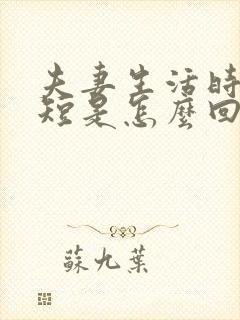 夫妻生活時
短是怎麼回
蘇九葉